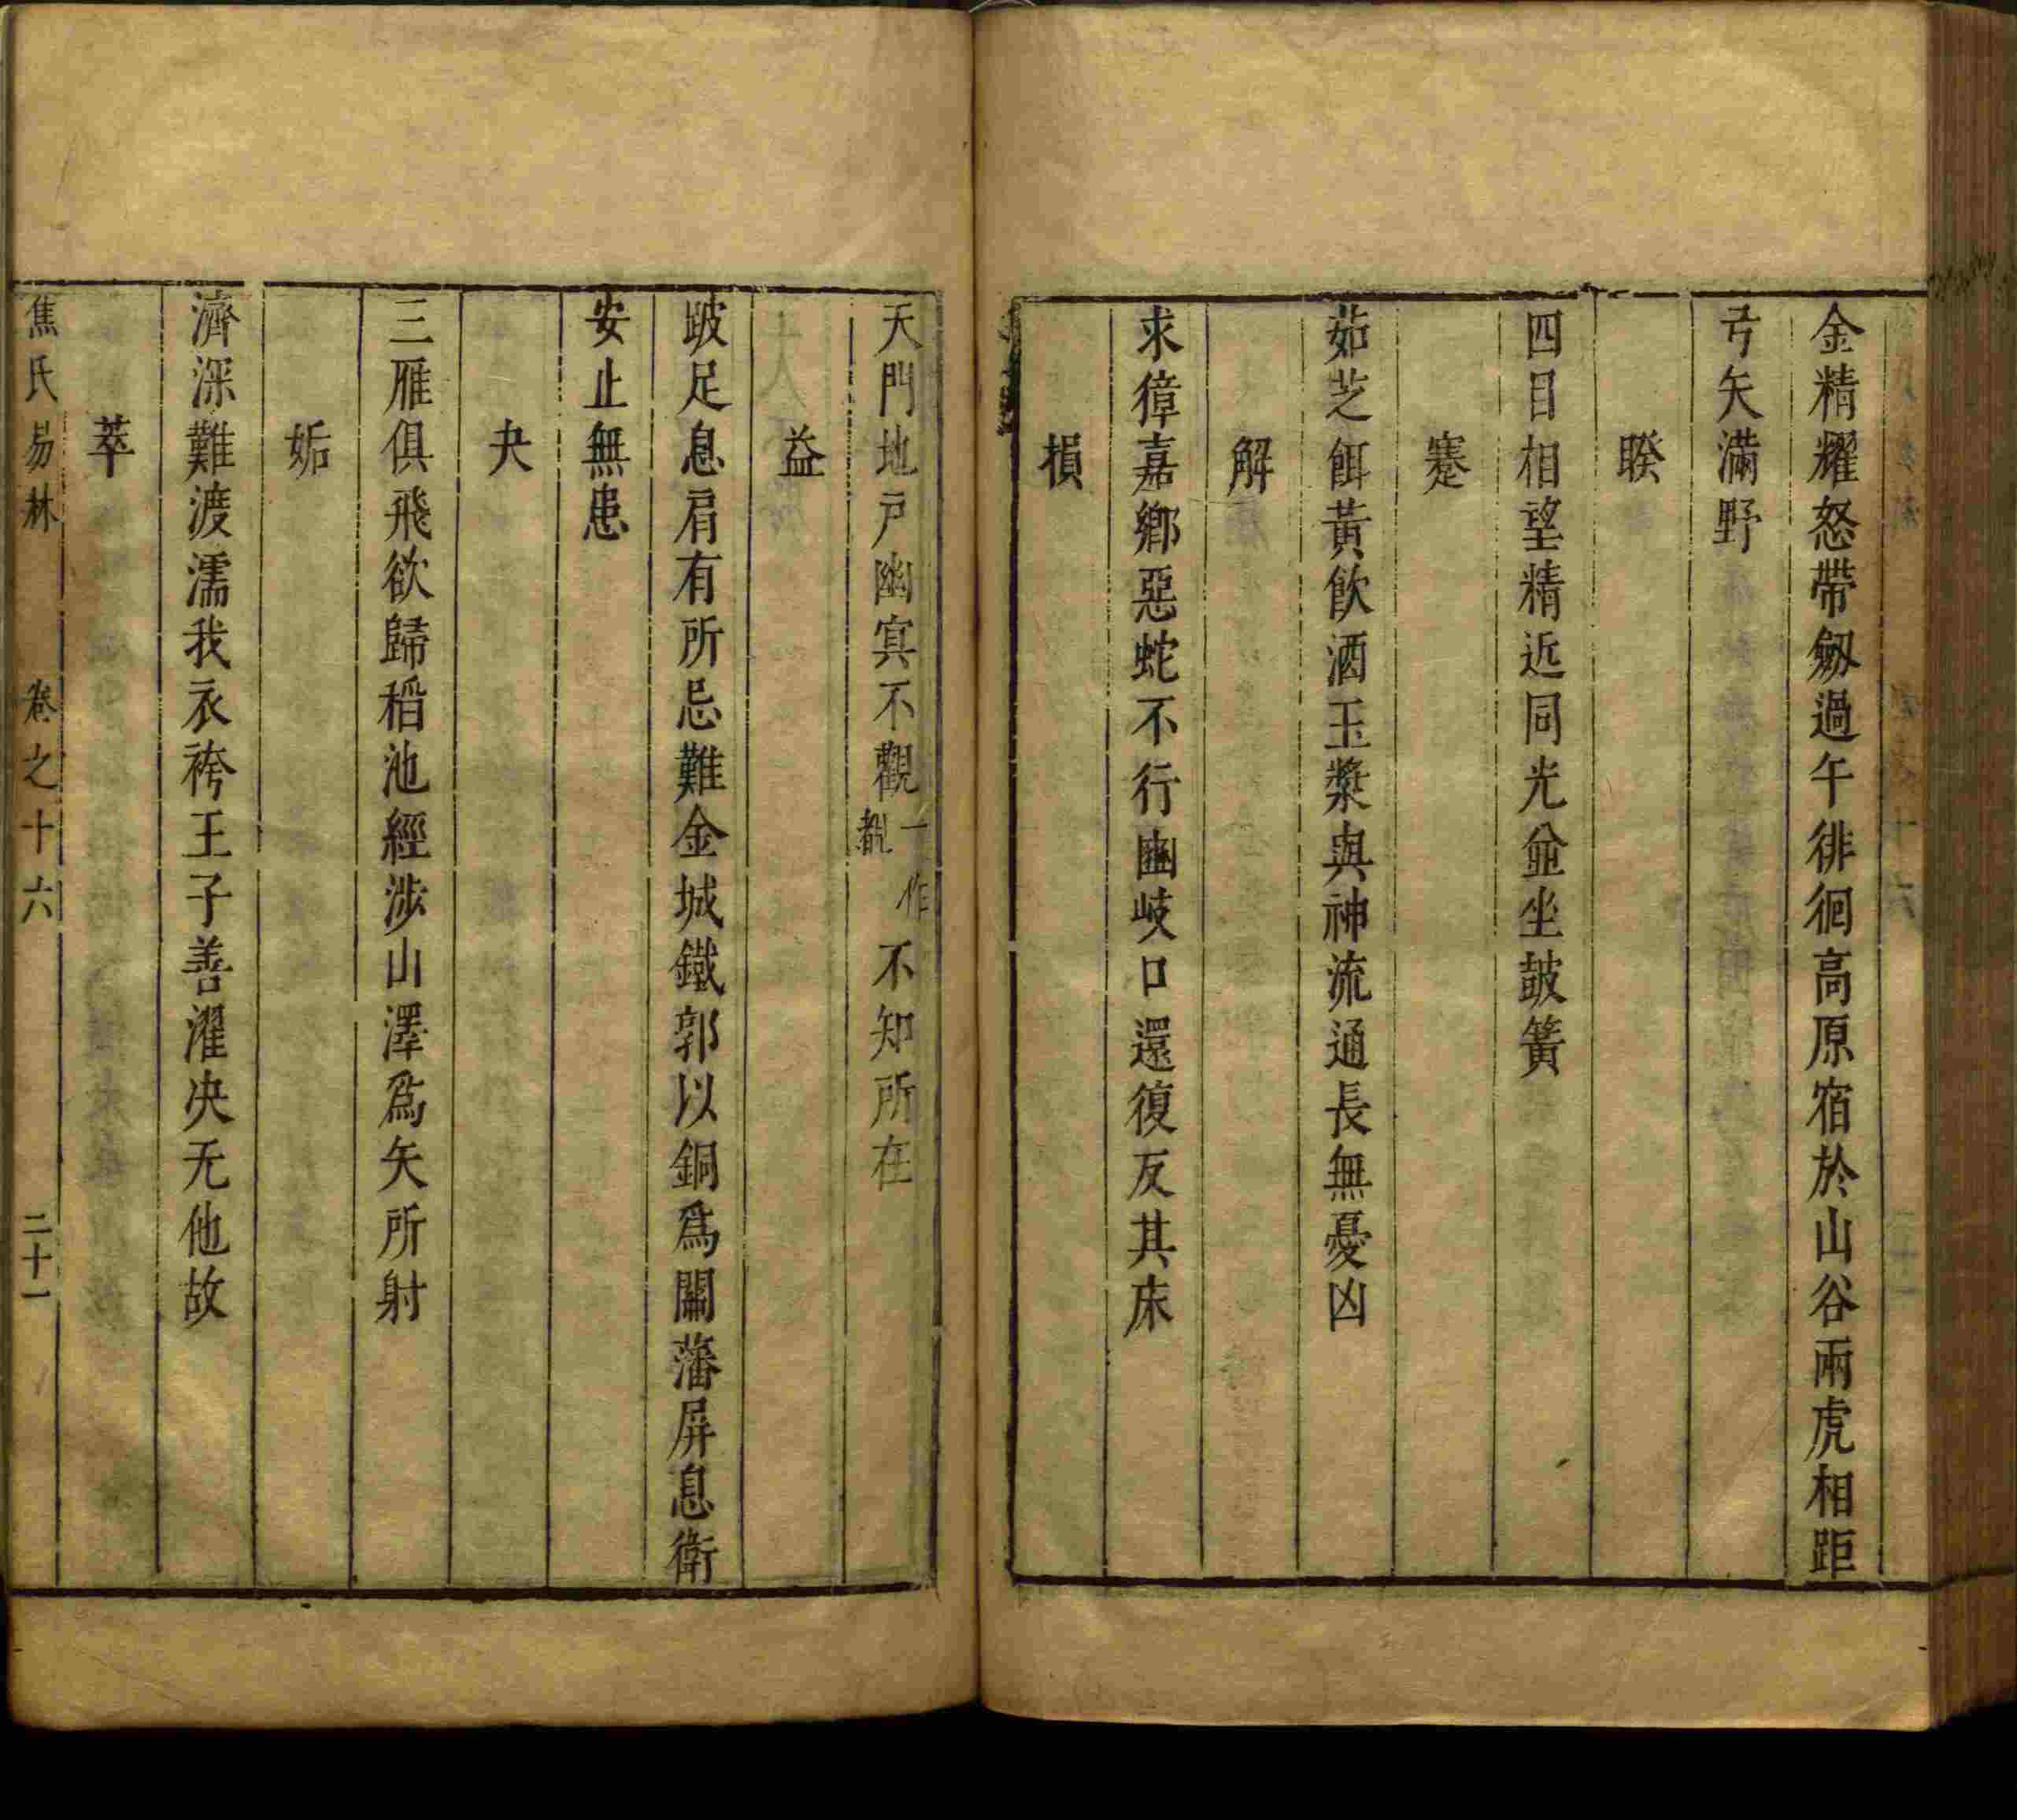 金精耀怒帶劔過午徘徊高原宿於山谷兩虎相距
弓矢滿野
睽
四目相望精近同光並坐皷簧
蹇
茹芝餌黃飲酒玉槳與神流通長無憂凶
解
求獐嘉鄉惡蛇不行豳岐口還復反其床
損
天門地戶幽㝠不觀一作覩不知所在
益
跛足息肩有所忌難金城鐵郭以銅爲關藩屏息衛
安止無患
夬
三雁俱飛欲歸稻池經涉山澤爲矢所射
姤
濟深難渡濡我衣袴王子善濯决无他故
萃
焦氏易林 卷之十六 二十一